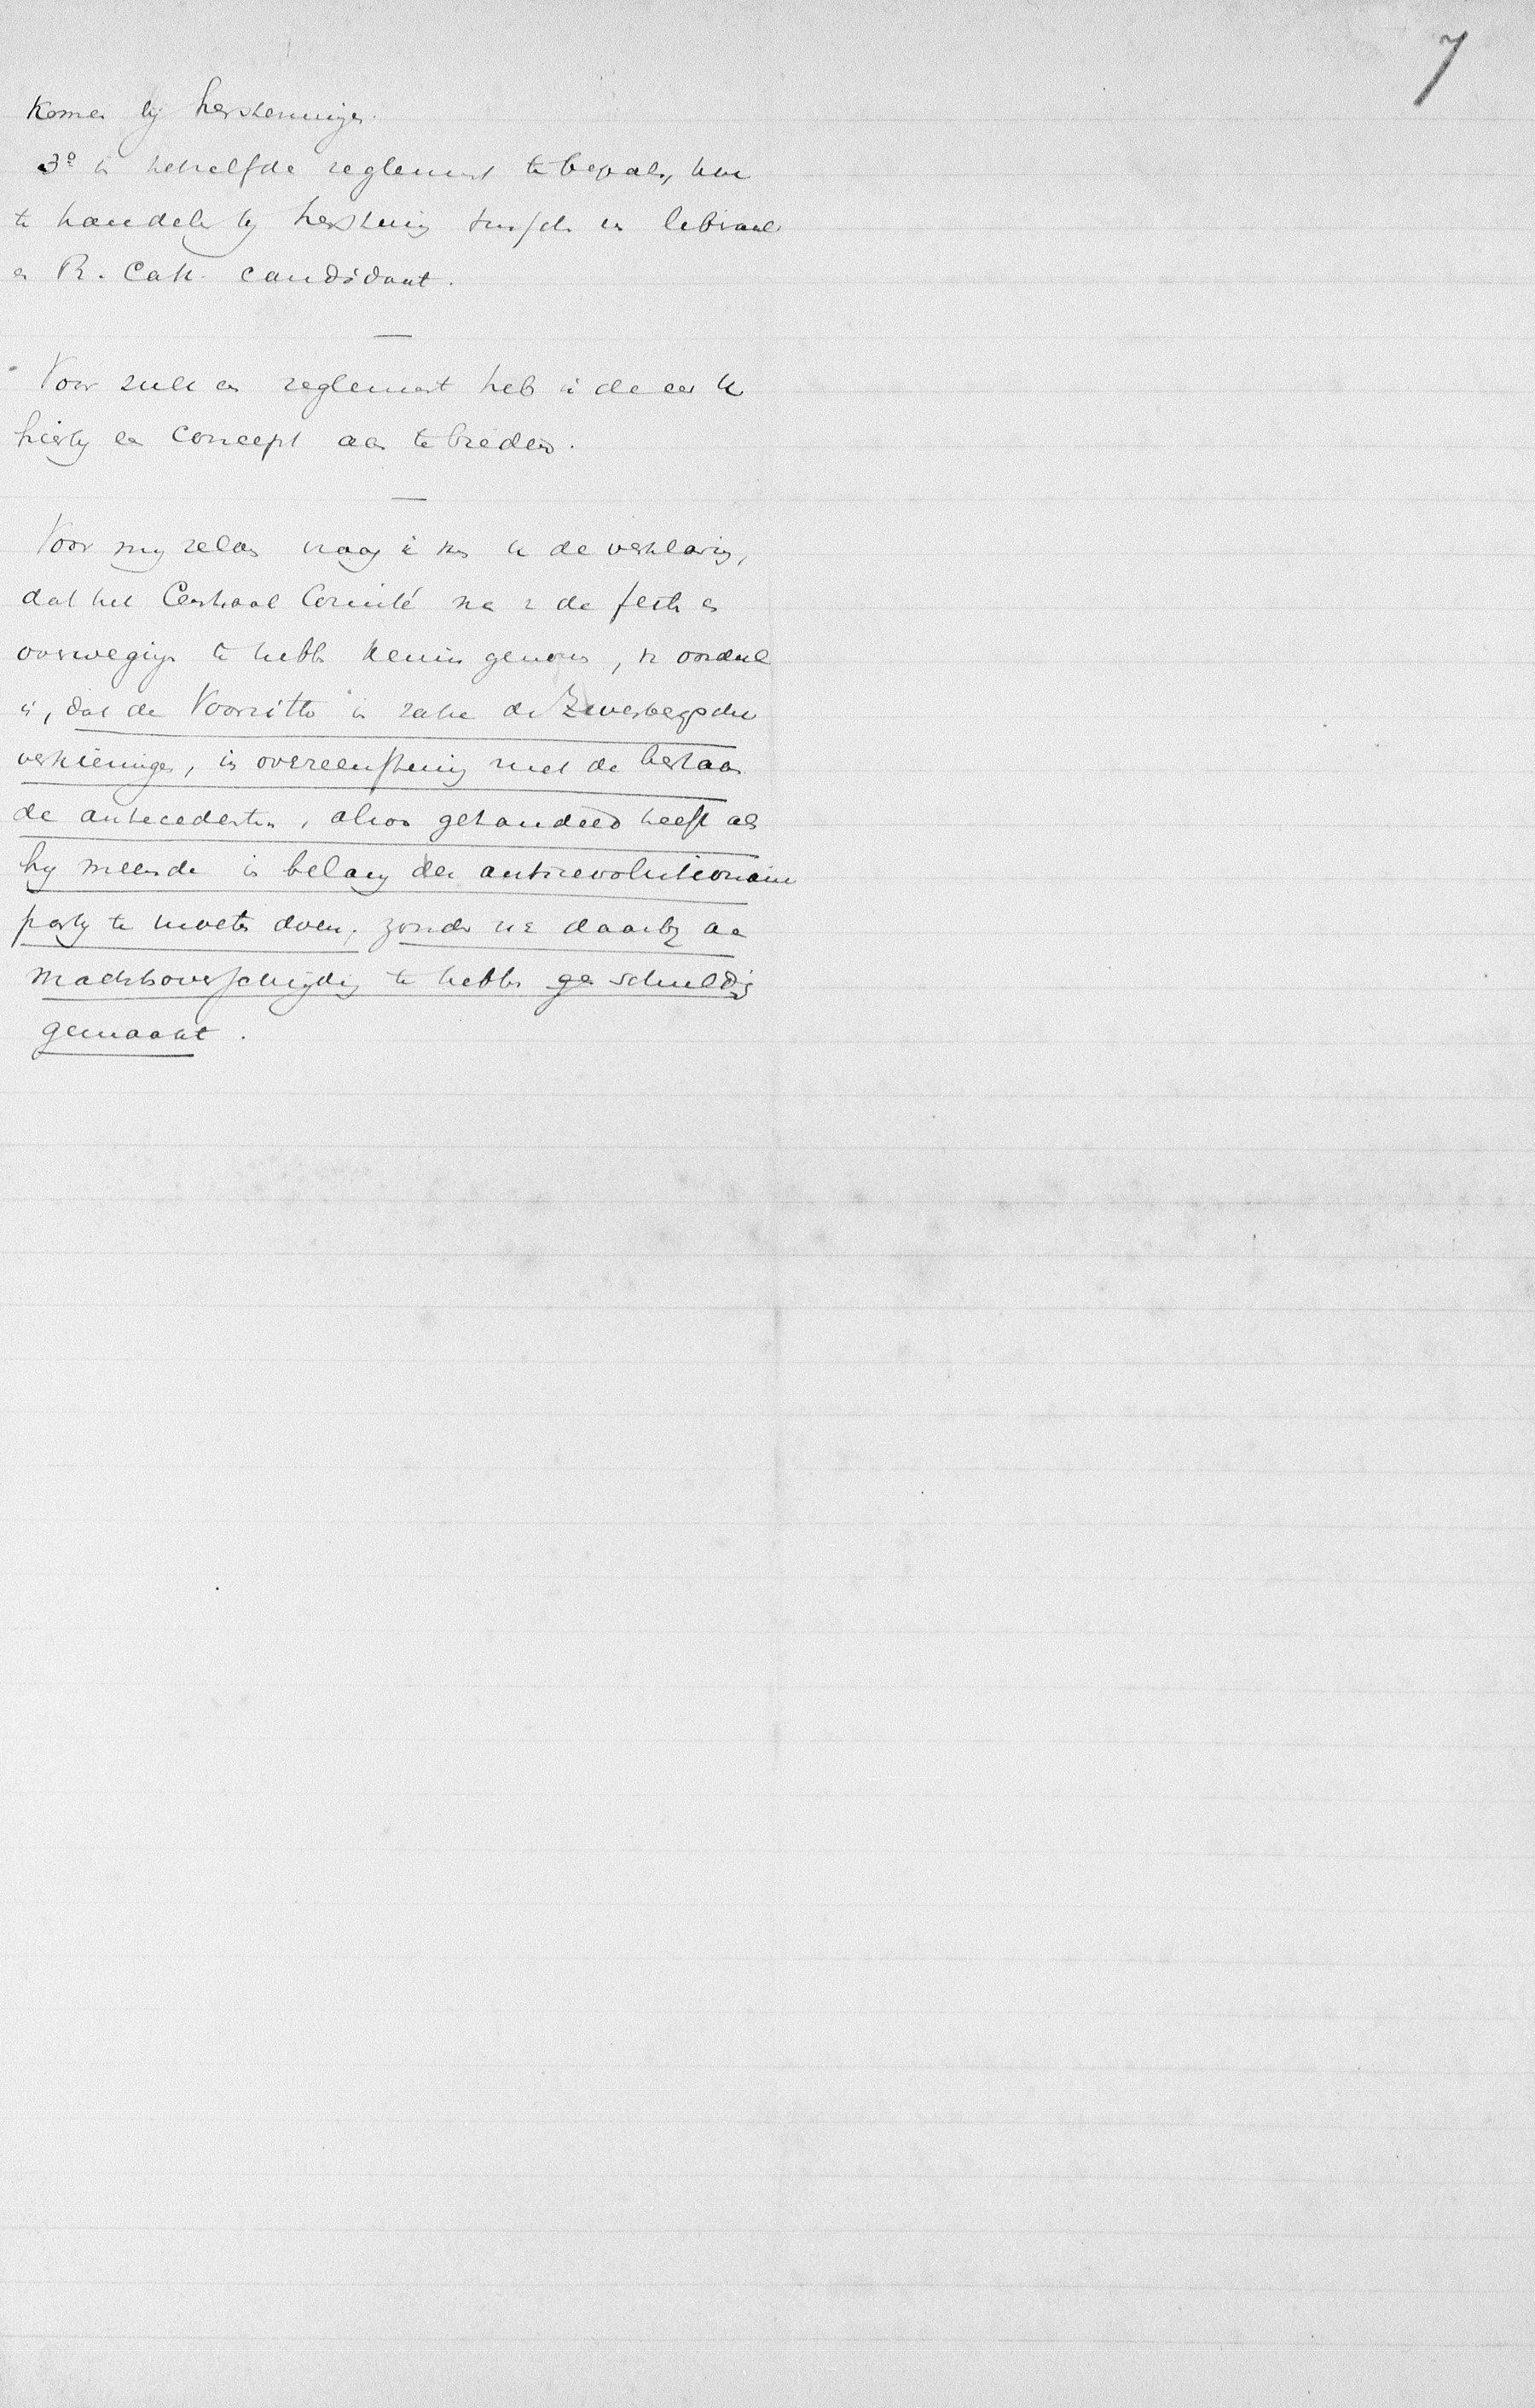 7
komen bij herstemmingen.
3º in hetzelfde reglement te bepalen, hoe
te handelen bij herstemming tusschen een liberaal
en R. Cath. candidaat.
Voor zulk een reglement heb ik de eer U
hierbij een concept aan te bieden.
Voor mij zelven vraag ik van U de verklaring,
dat het Centraal Comité na van de feiten en
overwegingen te hebben kennis genomen, van oordeel
is, dat de Voorzitter in zake de Zevenbergsche
verkiezingen, in overeenstemming met de bestaan
de antecedenten, alzoo gehandeld heeft als
hij meende in belang der antirevolutionaire
partij te moeten doen, zonder zich daarbij aan
machtsoverschrijding te hebben schuldig
gemaakt.